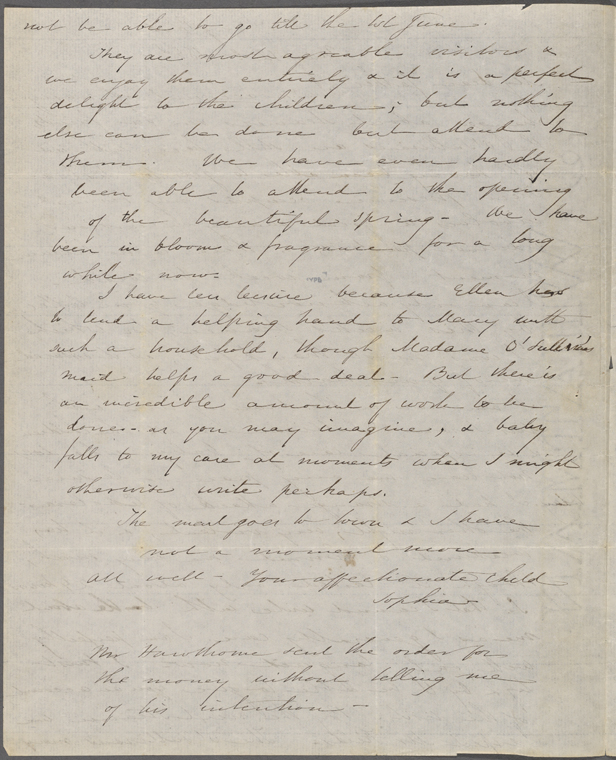 not be able to go till the 1st June.
They are most agreable visitors &
we enjoy them entirely & it is a perfect
delight to the children; but nothing
else can be done but attend to
them. We have even hardly
been able to attend to the opening
of the beautiful spring - We have
been in bloom & fragrance for a long
while now.
I have less leisure because Ellen has
to lend a helping hand to Mary with
such a household, though Madame O'Sullivan's
maid helps a good deal - But there is
an incredible amount of work to be
done - as you may imagine, & baby
falls to my care at moments when I might
otherwise write perhaps.
The mail goes to town & I have
not a moment more
All well - Your affectionate child
Sophia
Mr Hawthorne sent the order for
the money without telling me
of his intention -